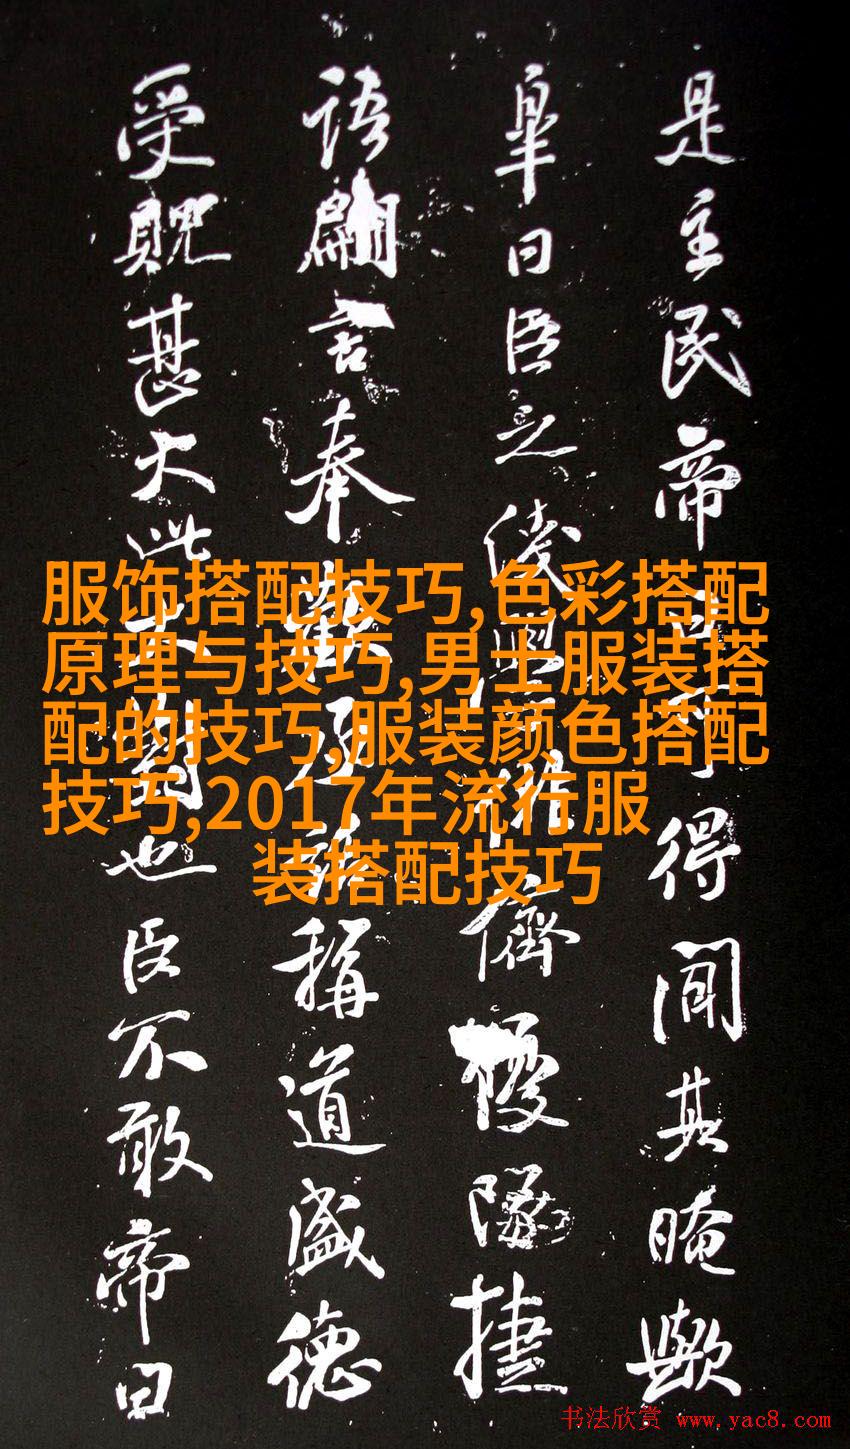 是主民帝得聞其晻歟
皋曰臣之儕優隊捷
語言奉稱道盛德
受貺甚大此也臣不敢帝曰
服饰搭配技巧,色彩搭配
原理与技巧,男士服装搭
配的技巧,服装颜色搭配
技巧,2017年流行服
装搭配技巧
书法欣赏 www.yac8.com